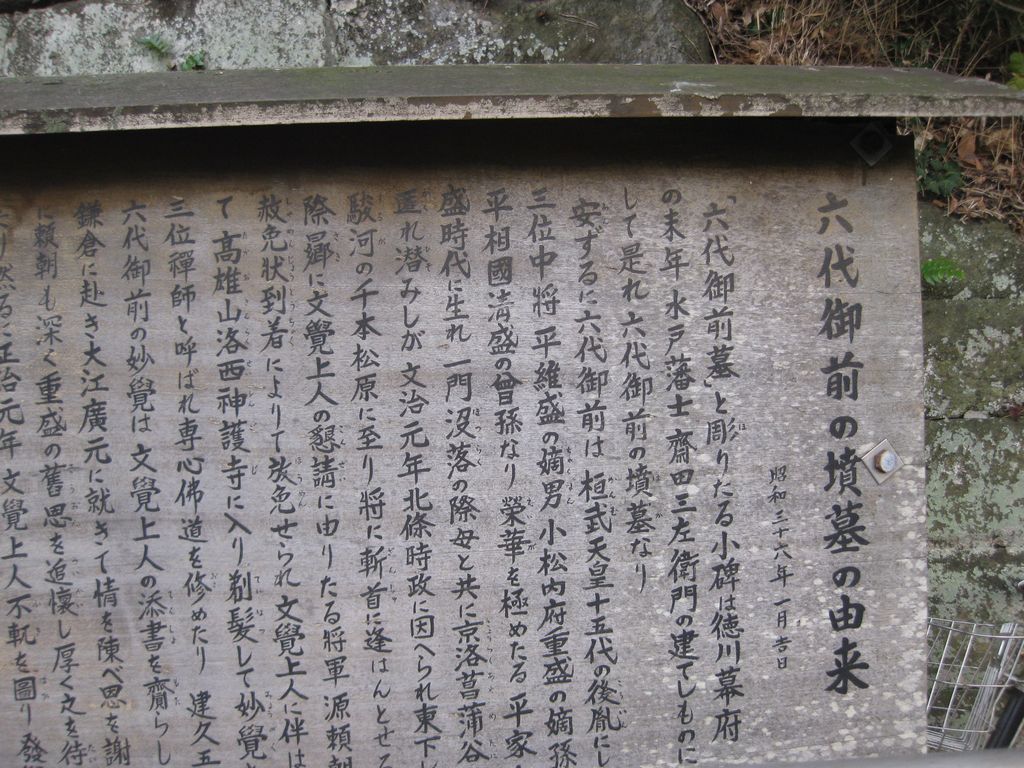 六代御前の墳墓の由来
昭和三十六年一月吉日
「六代御前墓」と彫りたる小碑は徳川幕府
の末年水戸藩士齋田三左衛門の建てしものに
して是れ六代御前の墳墓なり
安ずるに六代御前は桓武天皇十五代の後胤にし
三位中将平維盛の嫡男小松内府重盛の嫡孫
平相國清盛の曾孫なり榮華を極めたる平家
盛時代に生れ一門没落の際母と共に京洛菖蒲谷
匿れ潜みしが文治元年北條時政に因へられ東下し
駿河の千本松原に至り将に斬首に逢はんとせる
際曩に文覺上人の懇請に由りたる将軍源頼朝
赦免状到着によりて放免せられ文覺上人に伴は
て高雄山洛西神護寺に入り剃髪して妙覺
三位禪師と呼ばれ専心佛道を修めたり建久五
六代御前の妙覺は文覺上人の添書を齎らし
鎌倉に赴き大江廣元に就きて情を陳べ恩を謝
に頼朝も深く重盛の舊恩を追懐し厚く之を待
たり然るに正治元年文覺上人不軌を圖り發